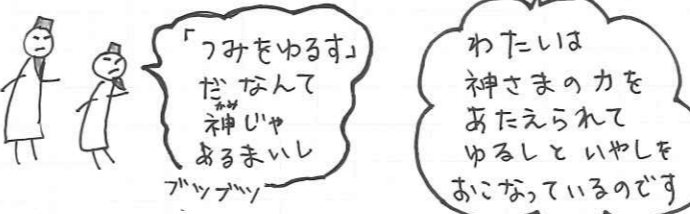 「つみをゆるす」
だなんて
神じゃ
かみ
あるまいし
ブツブツ
わたいは
神さまの力を
あたえられて
ゆるしといやしを
おこなっているのです